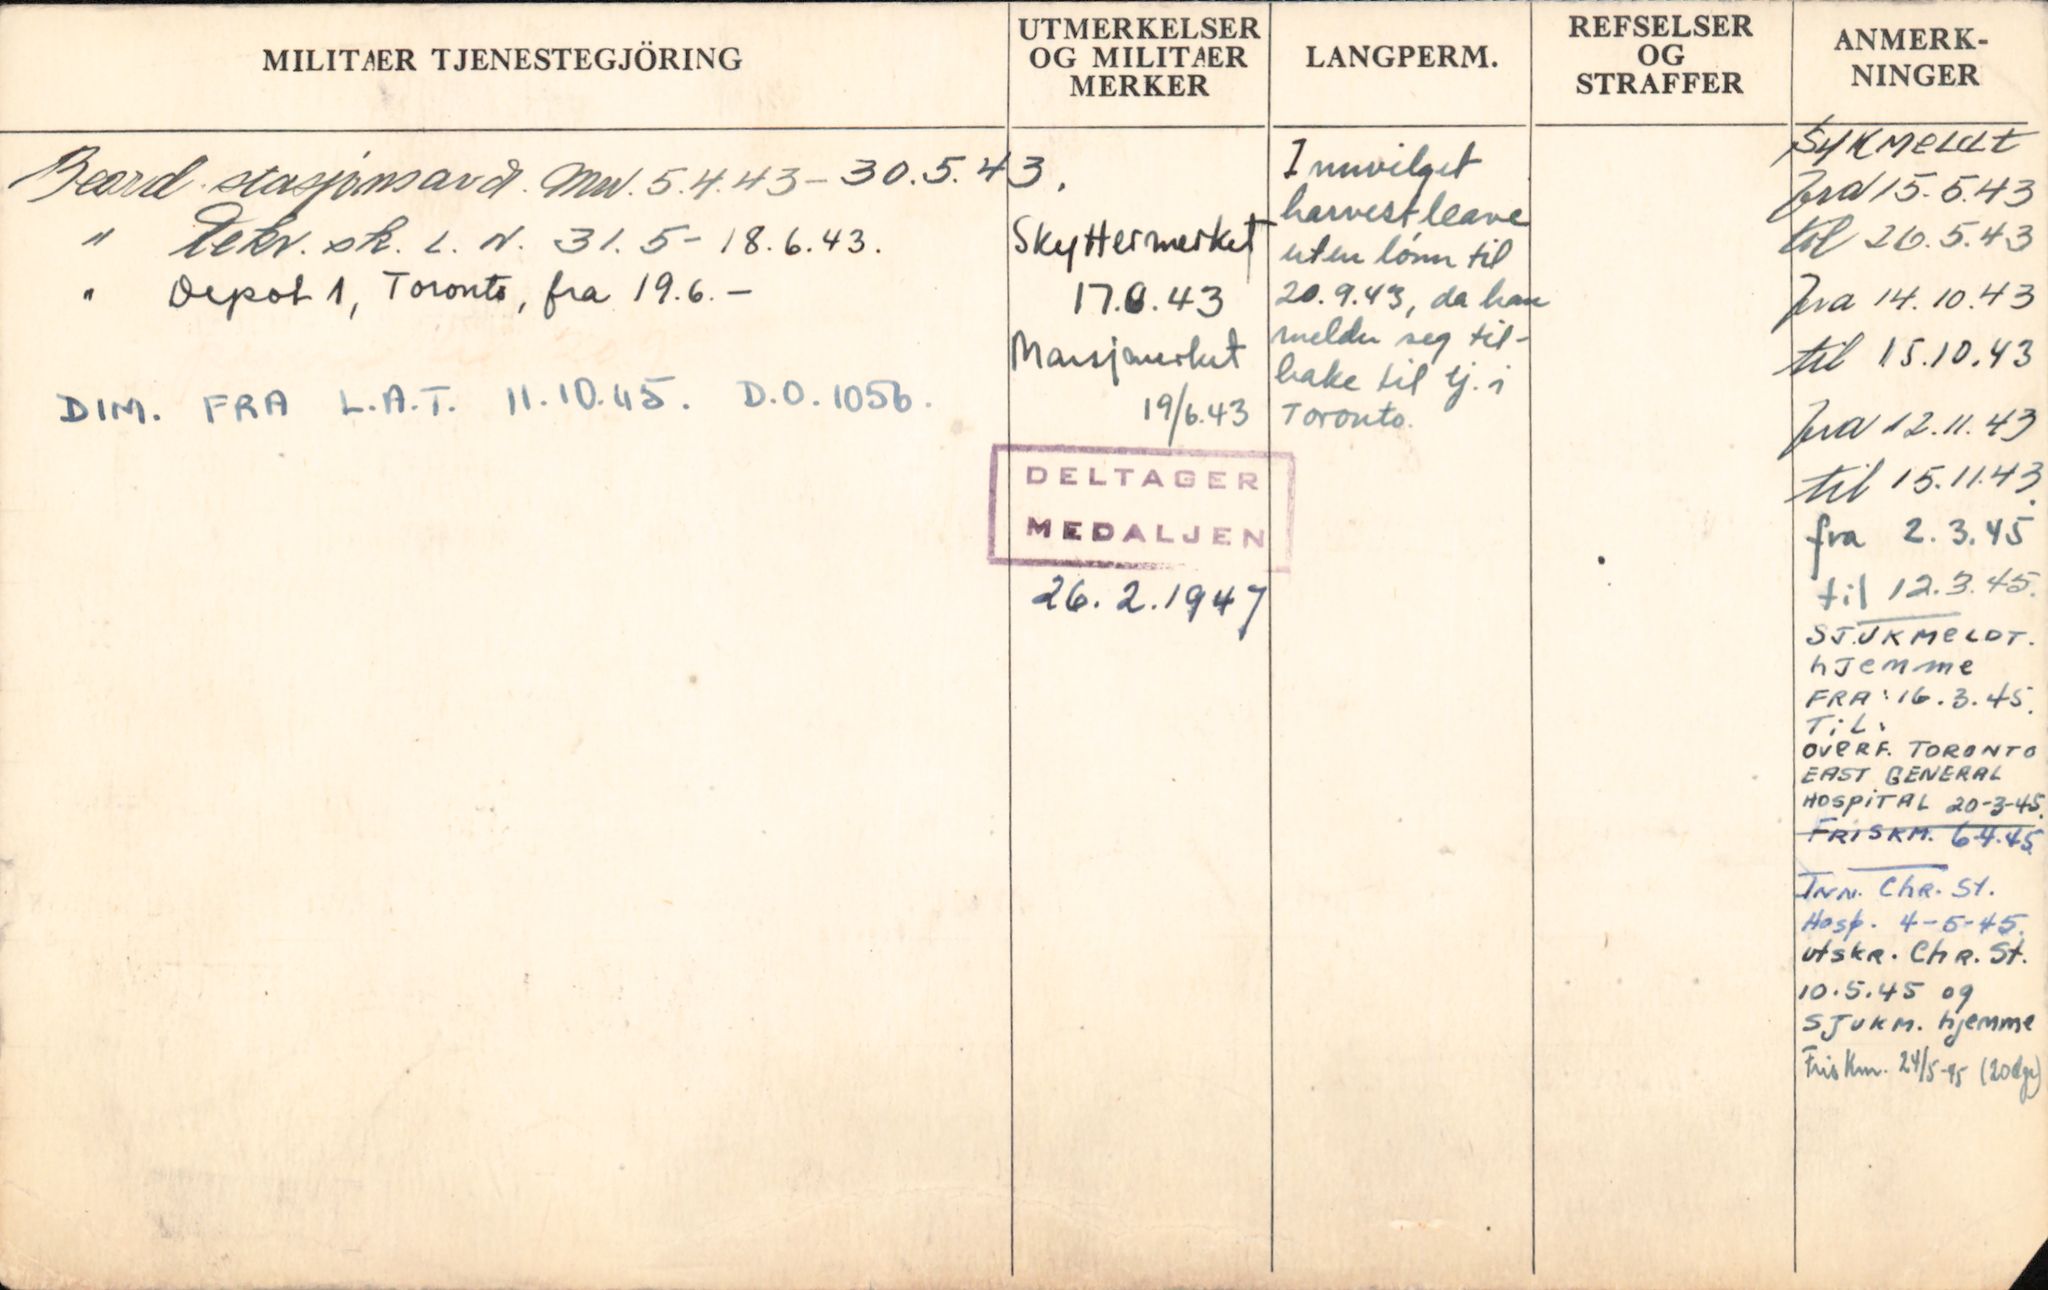 MILITÆR TJENESTEGJÖRING
UTMERKELSER
OG MILITÆR
MERKER
LANGPERM.
REFSELSER
OG
STRAFFER
ANMERK-
NINGER
Beord. stasjonsavd. Mw. 5.4.43 - 30.5.43.
" Rekr. sk. L. N. 31.5 - 18.6.43.
" Depot 1, Toronto, fra 19.6. -
DIM. FRA L.A.T. 11.10.45. D.O. 1056.
Skyttermerket
17.6.43
Marsjmerket
19/6.43
DELTAGER
MEDALJEN
26.2.1947
Innvilget
harvest leave
uten lønn til
20.9.43, da han
melder seg til-
bake til tj. i
Toronto.
SYKMELDT
fra 15.5.43
til 26.5.43
fra 14.10.43
til 15.10.43
fra 12.11.43
til 15.11.43.
fra 2.3.45
til 12.3.45.
SJUKMELDT.
hJemme
FRA: 16.3.45.
TiL:
OVERF. TORONTO
EAST GENERAL
HOSPITAL 20-3-45.
FRISKM. 6.4.45.
INN. Chr. St.
Hosp. 4-5-45.
utskr. Chr. St.
10.5.45 og
SJUKM. hjemme
Friskm. 24/5-45 (20dgr)